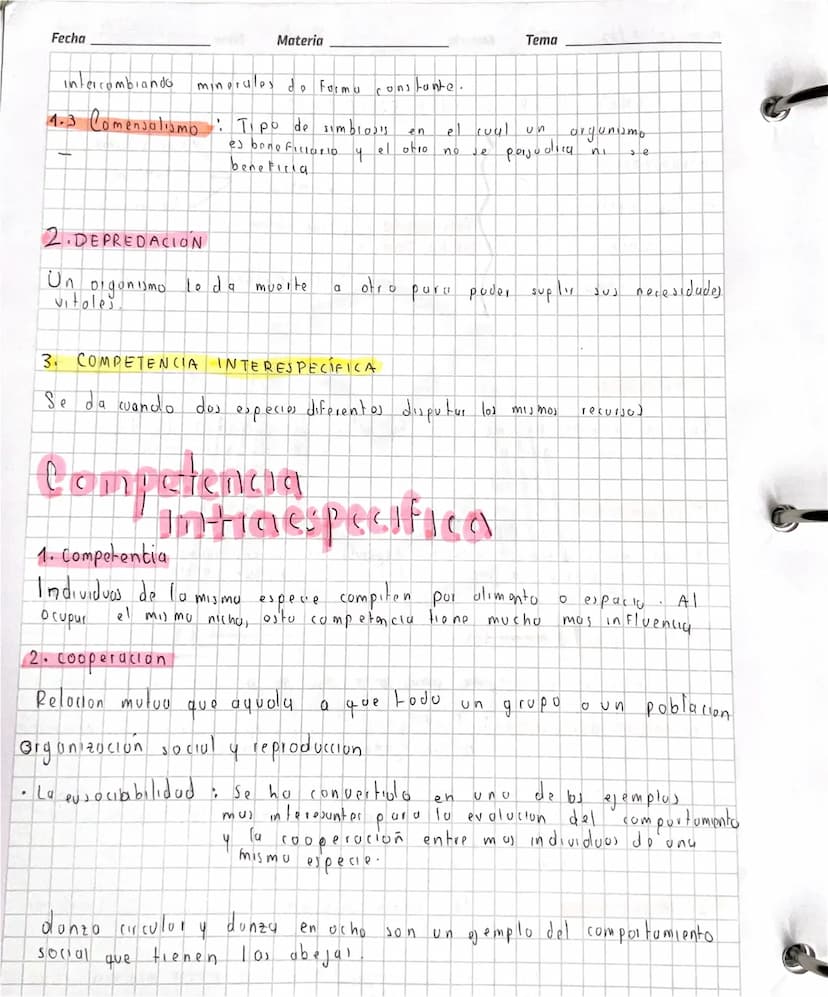 Fecha Materia Tema
intercambiando minerales de forma constante.
1.3 Comensalismo : Tipo de simbiosis en el cual un organismo
es beneficiario y el otro no se perjudica ni se
beneficia
2. DEPREDACIÓN
Un organismo le da muerte a otro para poder suplir sus necesidades
vitales.
3. COMPETENCIA INTERESPECÍFICA
Se da cuando dos especies diferentes disputan los mismos recursos
Competencia
intraespecifica
1. Competencia
Individuos de la misma especie compiten por alimento o espacio. Al
ocupar el mismo nicho, esta competencia tiene mucho mas influencia
2. cooperacion
Relacion mutua que ayuda a que todo un grupo o un poblacion
Organización social y reproduccion
• La eusociabilidad : se ha convertido en uno de los ejemplos
mas interesantes para la evolucion del comportamiento
y la cooperación entre mas individuos de una
misma especie.
danza circular y danza en ocho son un ejemplo del comportamiento
social que tienen las abejas.